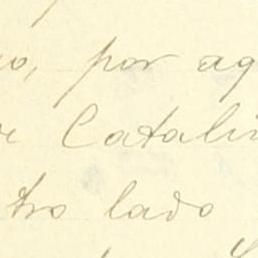 o, por ag
r Catali
tro lado